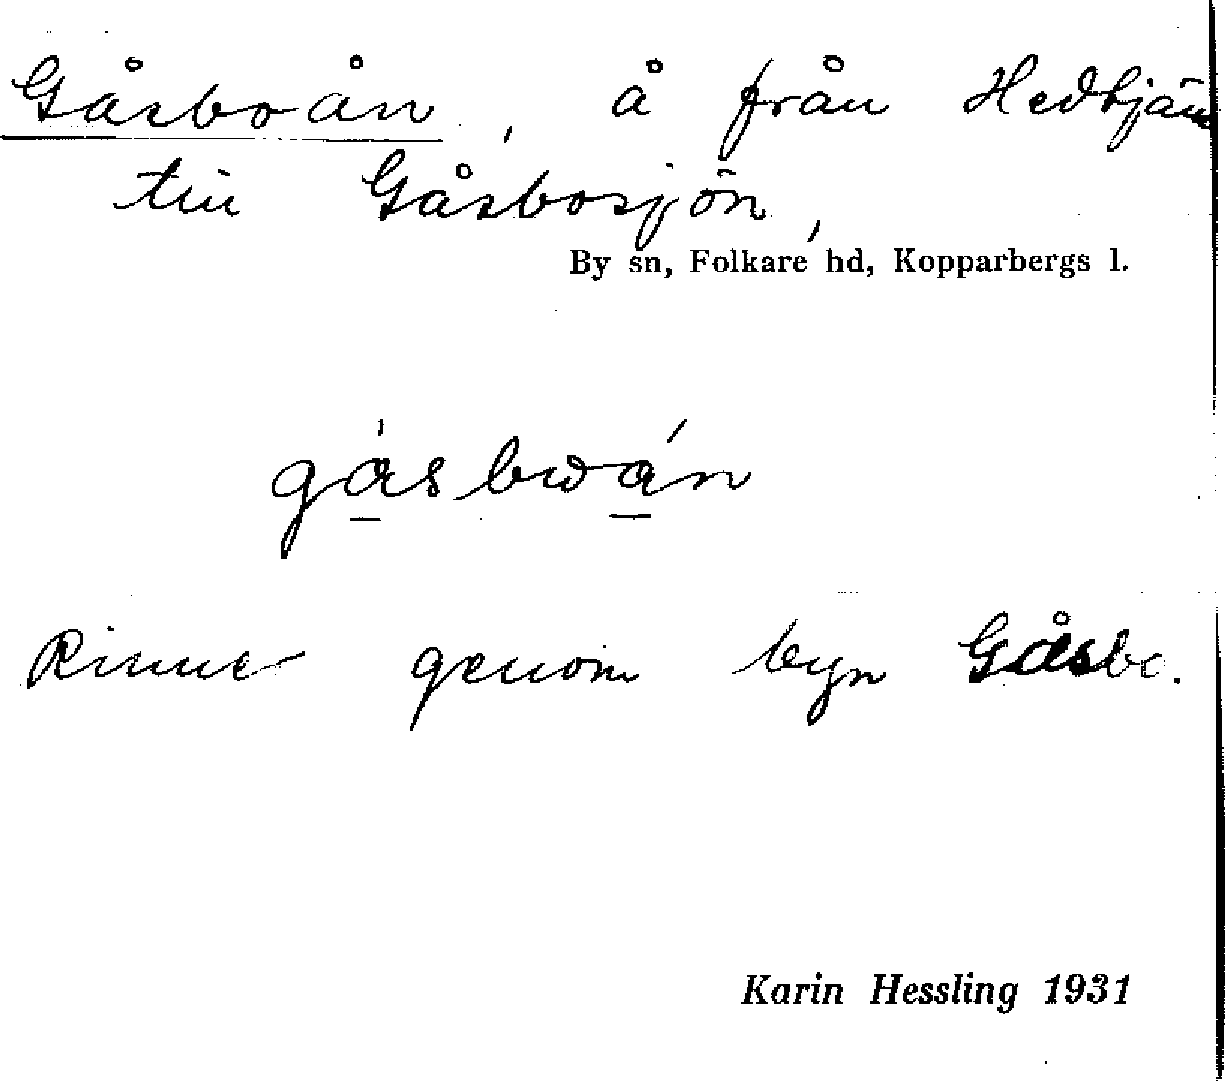 Gåsboån, å från Hedtjärn
till Gåsbosjön,
By sn, Folkare hd, Kopparbergs l.
Rinner genom byn Gåsbo.
Karin Hessling 1931